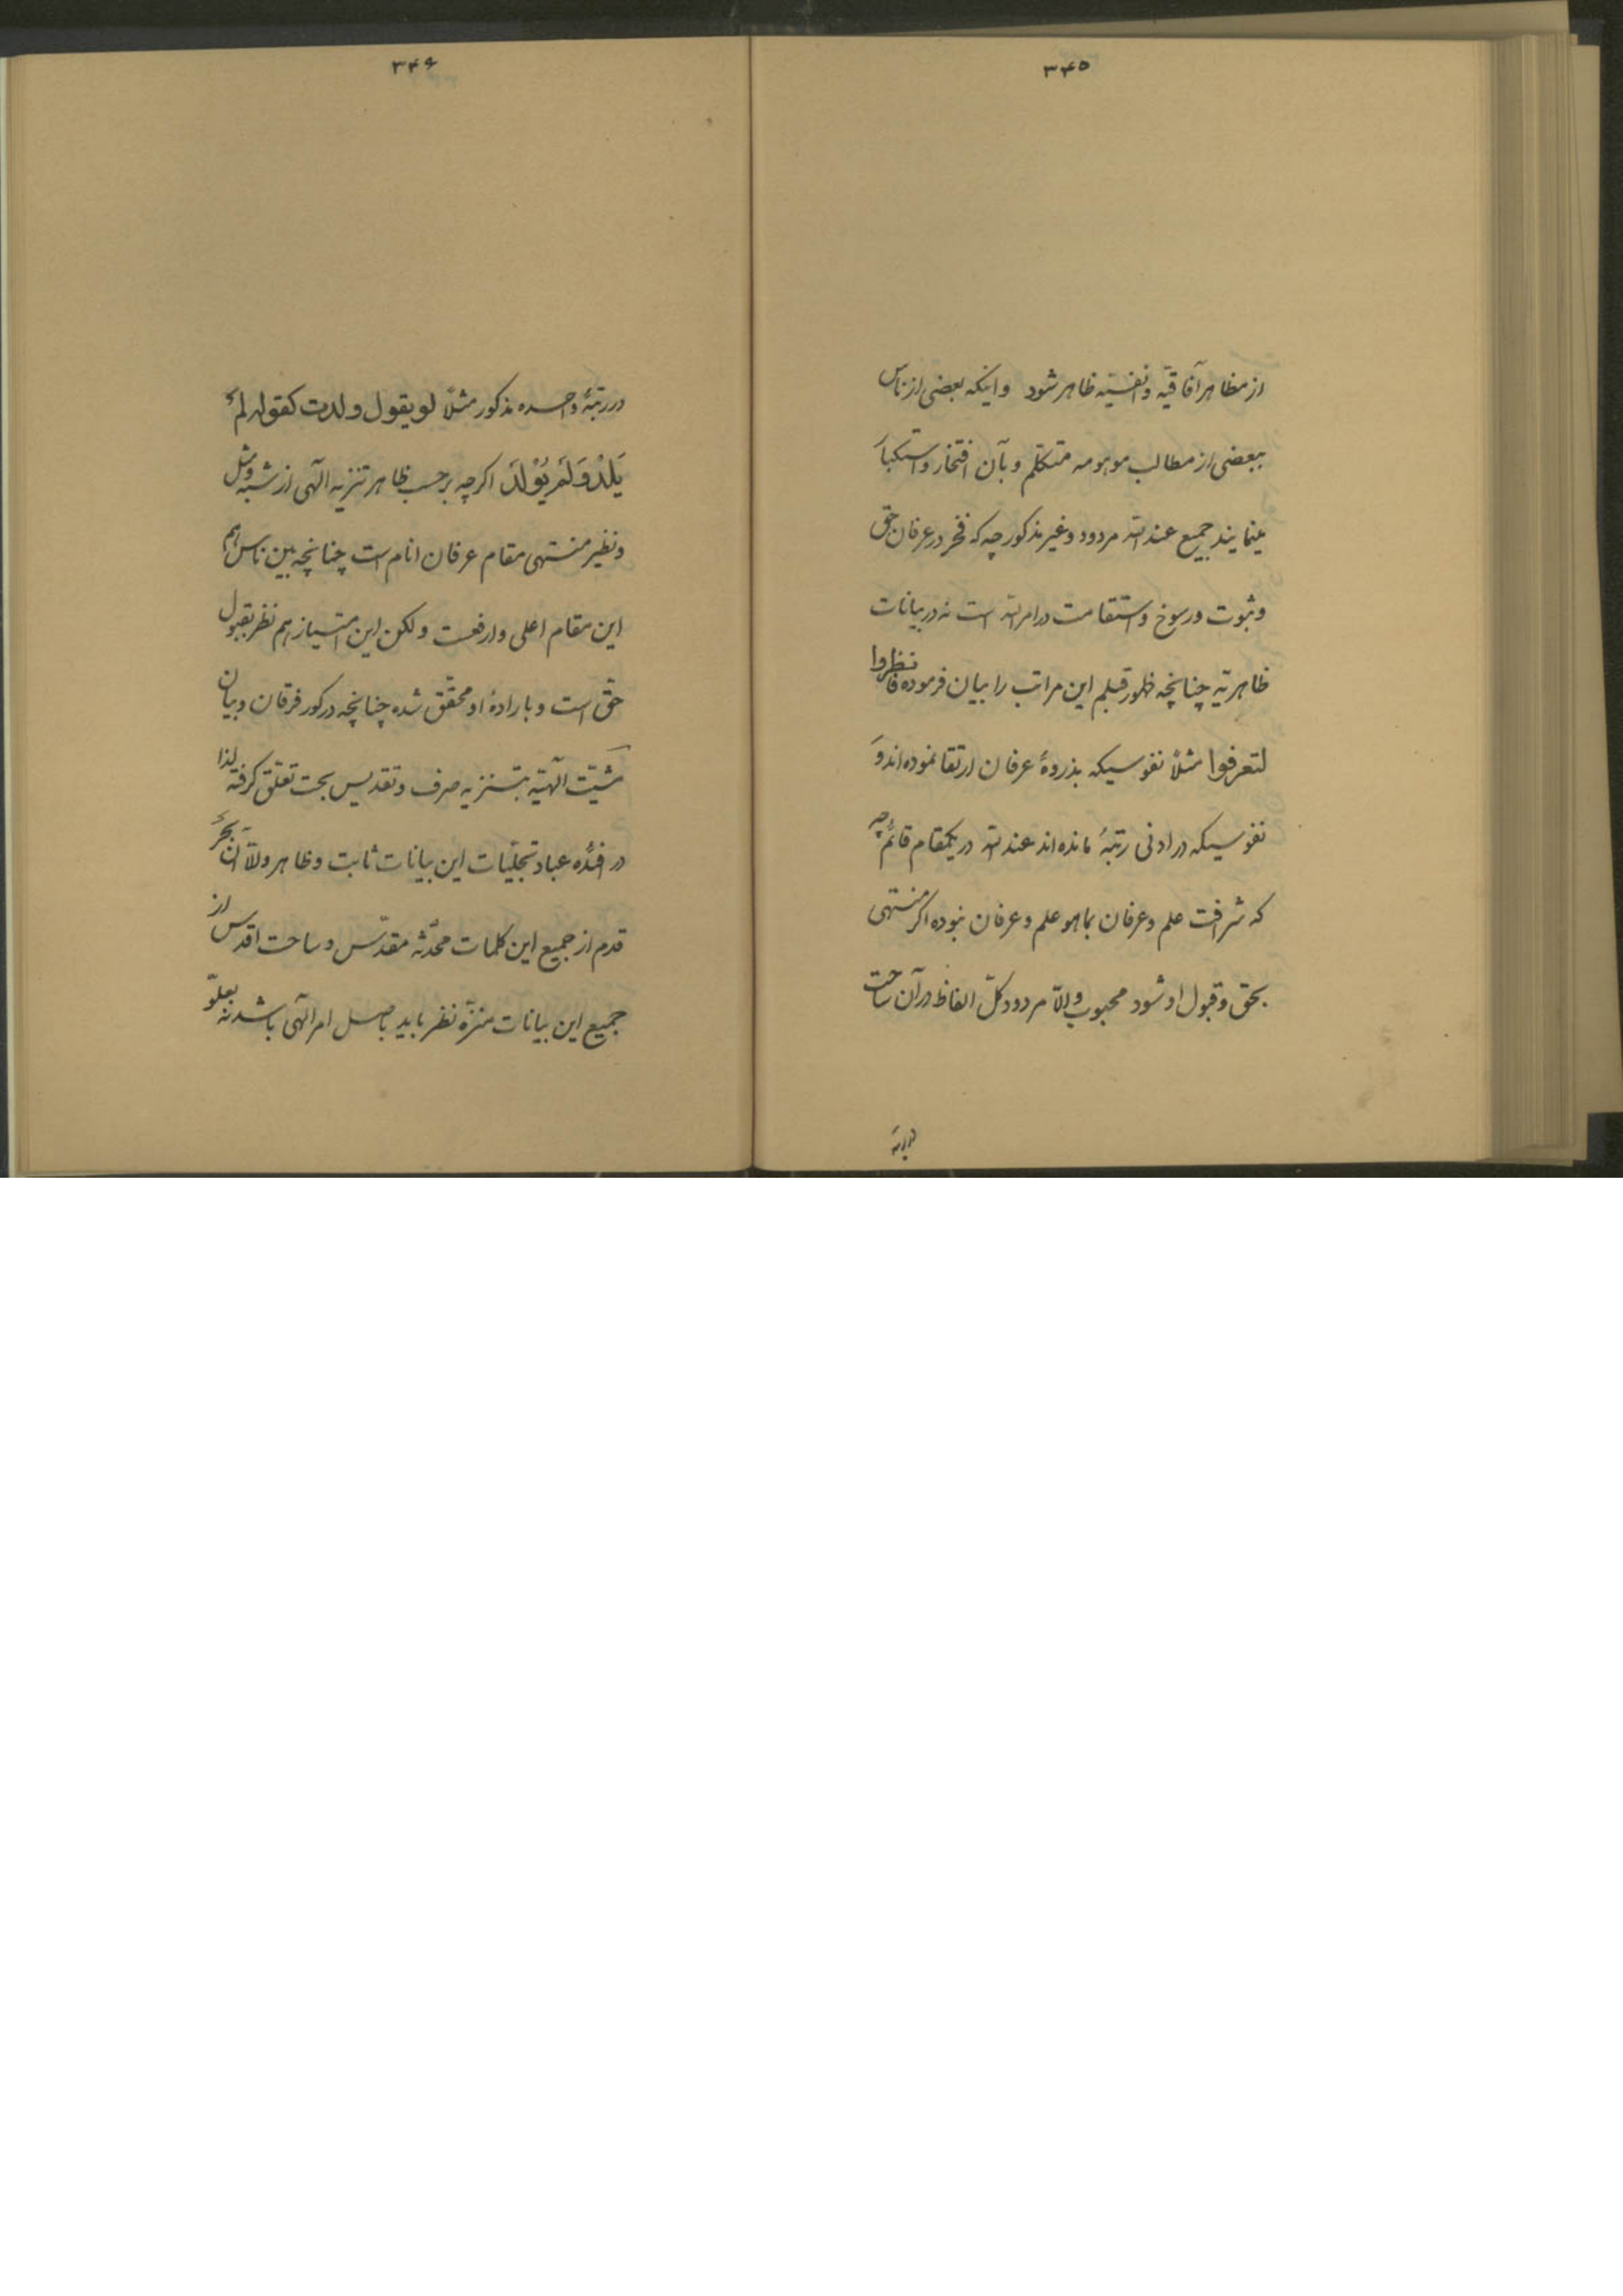 ۳۴۵
از مظاهر آفاقیّه و انفسیّه ظاهر شود و اینکه بعضی از ناس
ببعضی از مطالب موهومه متکلّم و بآن افتخار و استکبار
مینمایند جمیع عند الله مردود و غیر مذکور چه که فخر در عرفان حق
و ثبوت و رسوخ و استقامت در امر الله است نه در بیانات
ظاهریّه چنانچه ظهور قبلم این مراتب را بیان فرموده فانظروا
لتعرفوا مثلاً نفوسیکه بذروهٔ عرفان ارتقا نموده‌اند و
نفوسیکه در ادنی رتبهٔ مانده‌اند عند الله در یکمقام قائم چه
که شرافت علم و عرفان بما هو علم و عرفان نبوده اگر منتهی
بحق و قبول او شود محبوب و الّا مردود کلّ الفاظ در آن ساحت
۳۴۶
در رتبهٔ واحده مذکور مثلاً لو یقول ولدت کقوله لم
یَلِدْ وَلَمْ یُوْلَدْ اگرچه بر حسب ظاهر تنزیه الٓهی از شبه و مثل
و نظیر منتهی مقام عرفان انام است چنانچه بین ناس هم
این مقام اعلی و ارفعست ولکن این امتیاز هم نظر بقبول
حقّ است و باراده او محقّق شده چنانچه در کور فرقان و بیان
مشیّت الٓهیّه بتنزیه صرف و تقدیس بحت تعلّق گرفته لذا
در افئده عباد تجلّیات این بیانات ثابت و ظاهر و الّا آن بحر
قدم از جمیع این کلمات محدثه مقدّس و ساحت اقدس از
جمیع این بیانات منزّه نظر باید باصل امر الٓهی باشد نه بعلوّ